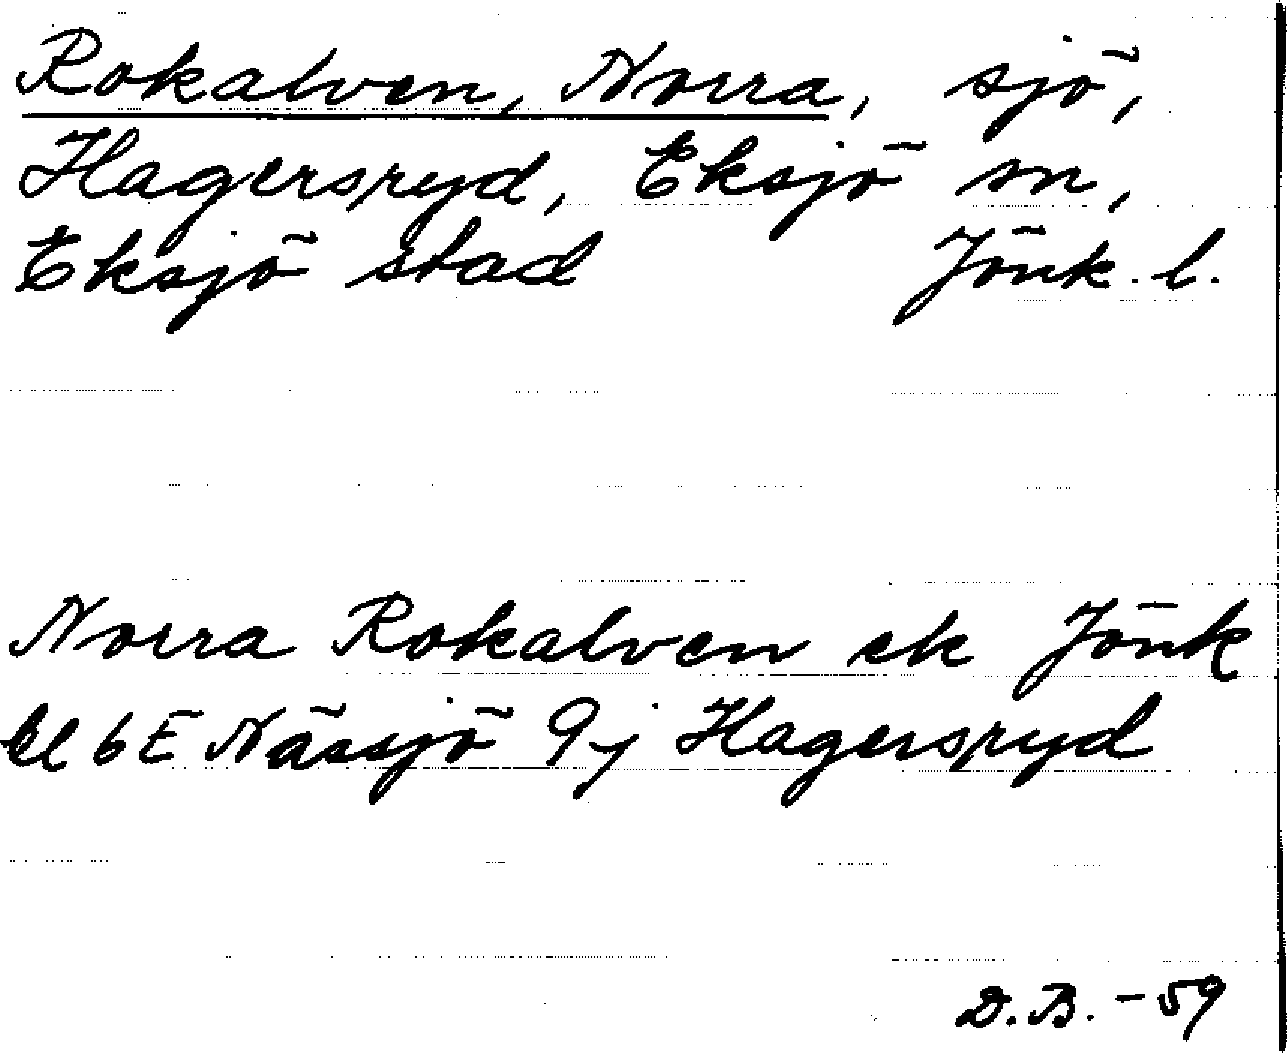 Rokalven, Norra, sjö,
Hagersryd, Eksjö sn,
Eksjö stad Jönk. l.
Norra Rokalven ek Jönk
bl 6E Nässjö 9j Hagersryd
D.B. -59